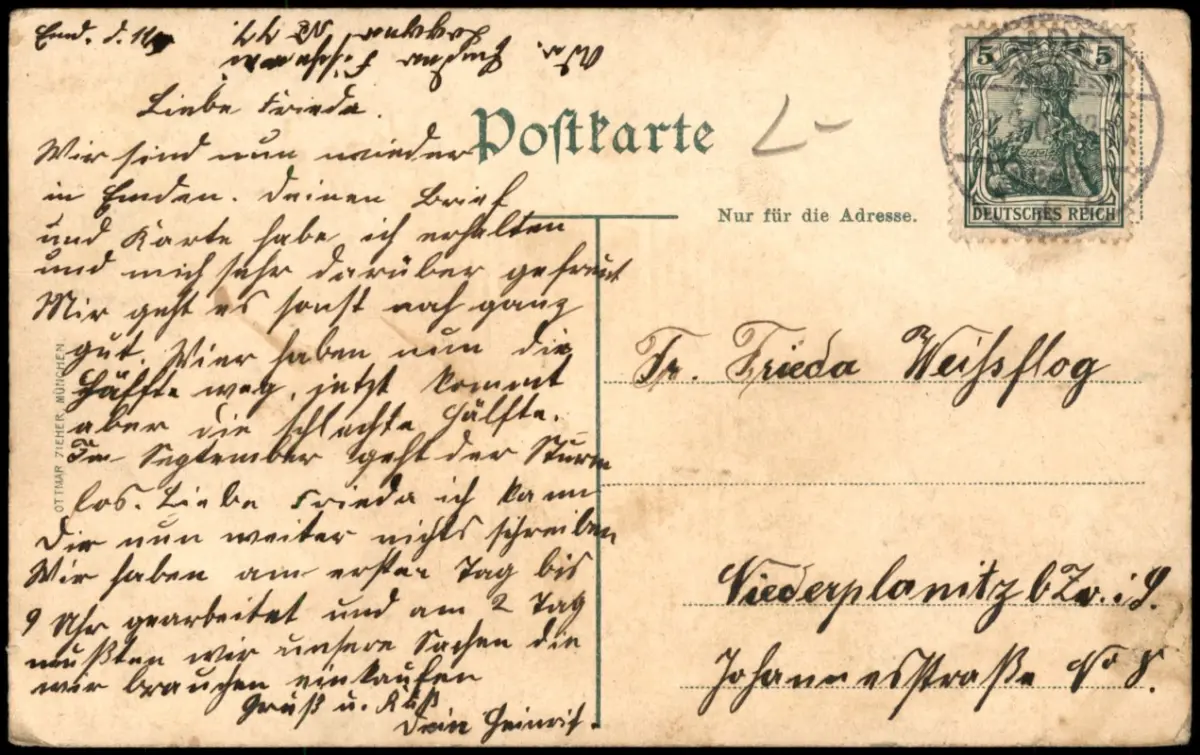 Emd. d. 11/
Liebe Frieda.
Wir sind nun wieder
in Emden. Deinen Brief
und Karte habe ich erhalten
und mich sehr darüber gefreut
Mir geht es sonst noch ganz
gut. Wier haben nun die
Hälfte weg, jetzt kommt
aber die schlechte Hälfte.
Im September geht der Sturm
los. Liebe Frieda ich kann
Dir nun weiter nichts schreiben
Wir haben am ersten Tag bis
9 Uhr gearbeitet und am 2 Tag
mußten wir unsere Sachen die
wir brauchen einkaufen
Gruß u. Kuß
Dein Heinrich.
Postkarte
Nur für die Adresse.
5 5
DEUTSCHES REICH
Fr. Frieda Weißflog
Niederplanitz b Zw. i S.
Johannesstraße No 8.
OTTMAR ZIEHER, MÜNCHEN